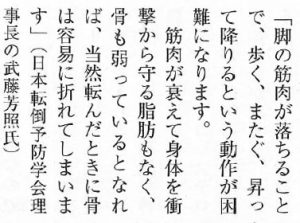 「脚の筋肉が落ちること
で、歩く、またぐ、昇っ
て降りるという動作が困
難になります。
筋肉が衰えて身体を衝
撃から守る脂肪もなく、
骨も弱っているとなれ
ば、当然転んだときに骨
は容易に折れてしまいま
す」（日本転倒予防学会理
事長の武藤芳照氏）